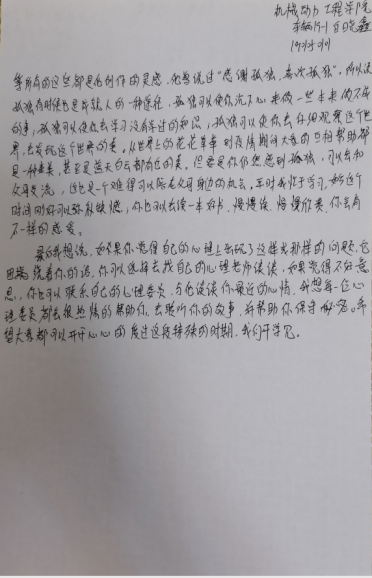 机械动力工程学院
车辆19-1 白晓鑫
等所有的这些都是他创作的灵感，他曾说过“感谢孤独，喜欢孤独”，所以说
孤独有时候也是成就人的一种途径，孤独可以使你沉下心来做一些未来做不成
的事，孤独可以使你去学习没有学过的知识，孤独可以使你去仔细观察这个世
界，去发现这个世界的美。从世界上的花花草草到疫情期间大家的互相帮助都
是一种美，甚至是蓝天白云都有它的美。但要是你仍然感到孤独，可以去和
父母交流，这也是一个难得可以陪在父母身边的机会。平时我忙于学习，如今这个
时间刚好可以弥补缺憾，你也可以去读一本好书，慢慢读，慢慢欣赏，你会有
不一样的感受。
最后我想说，如果你觉得自己的心理上出现了这样或那样的问题，它
困扰着你的话，你可以选择去找自己的心理老师谈谈，如果觉得不好意
思，你也可以联系自己的心理委员，与他谈谈你最近的心情，我想每一位心
理委员都会很热情的帮助你，去聆听你的故事，并帮助你保守秘密。希
望大家都可以开开心心的度过这段特殊的时期，我们开学见。